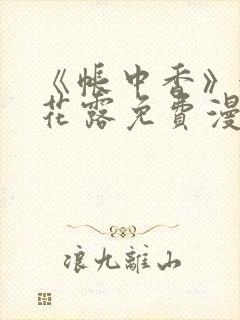 《帳中香》
花露免費漫
浪九離山